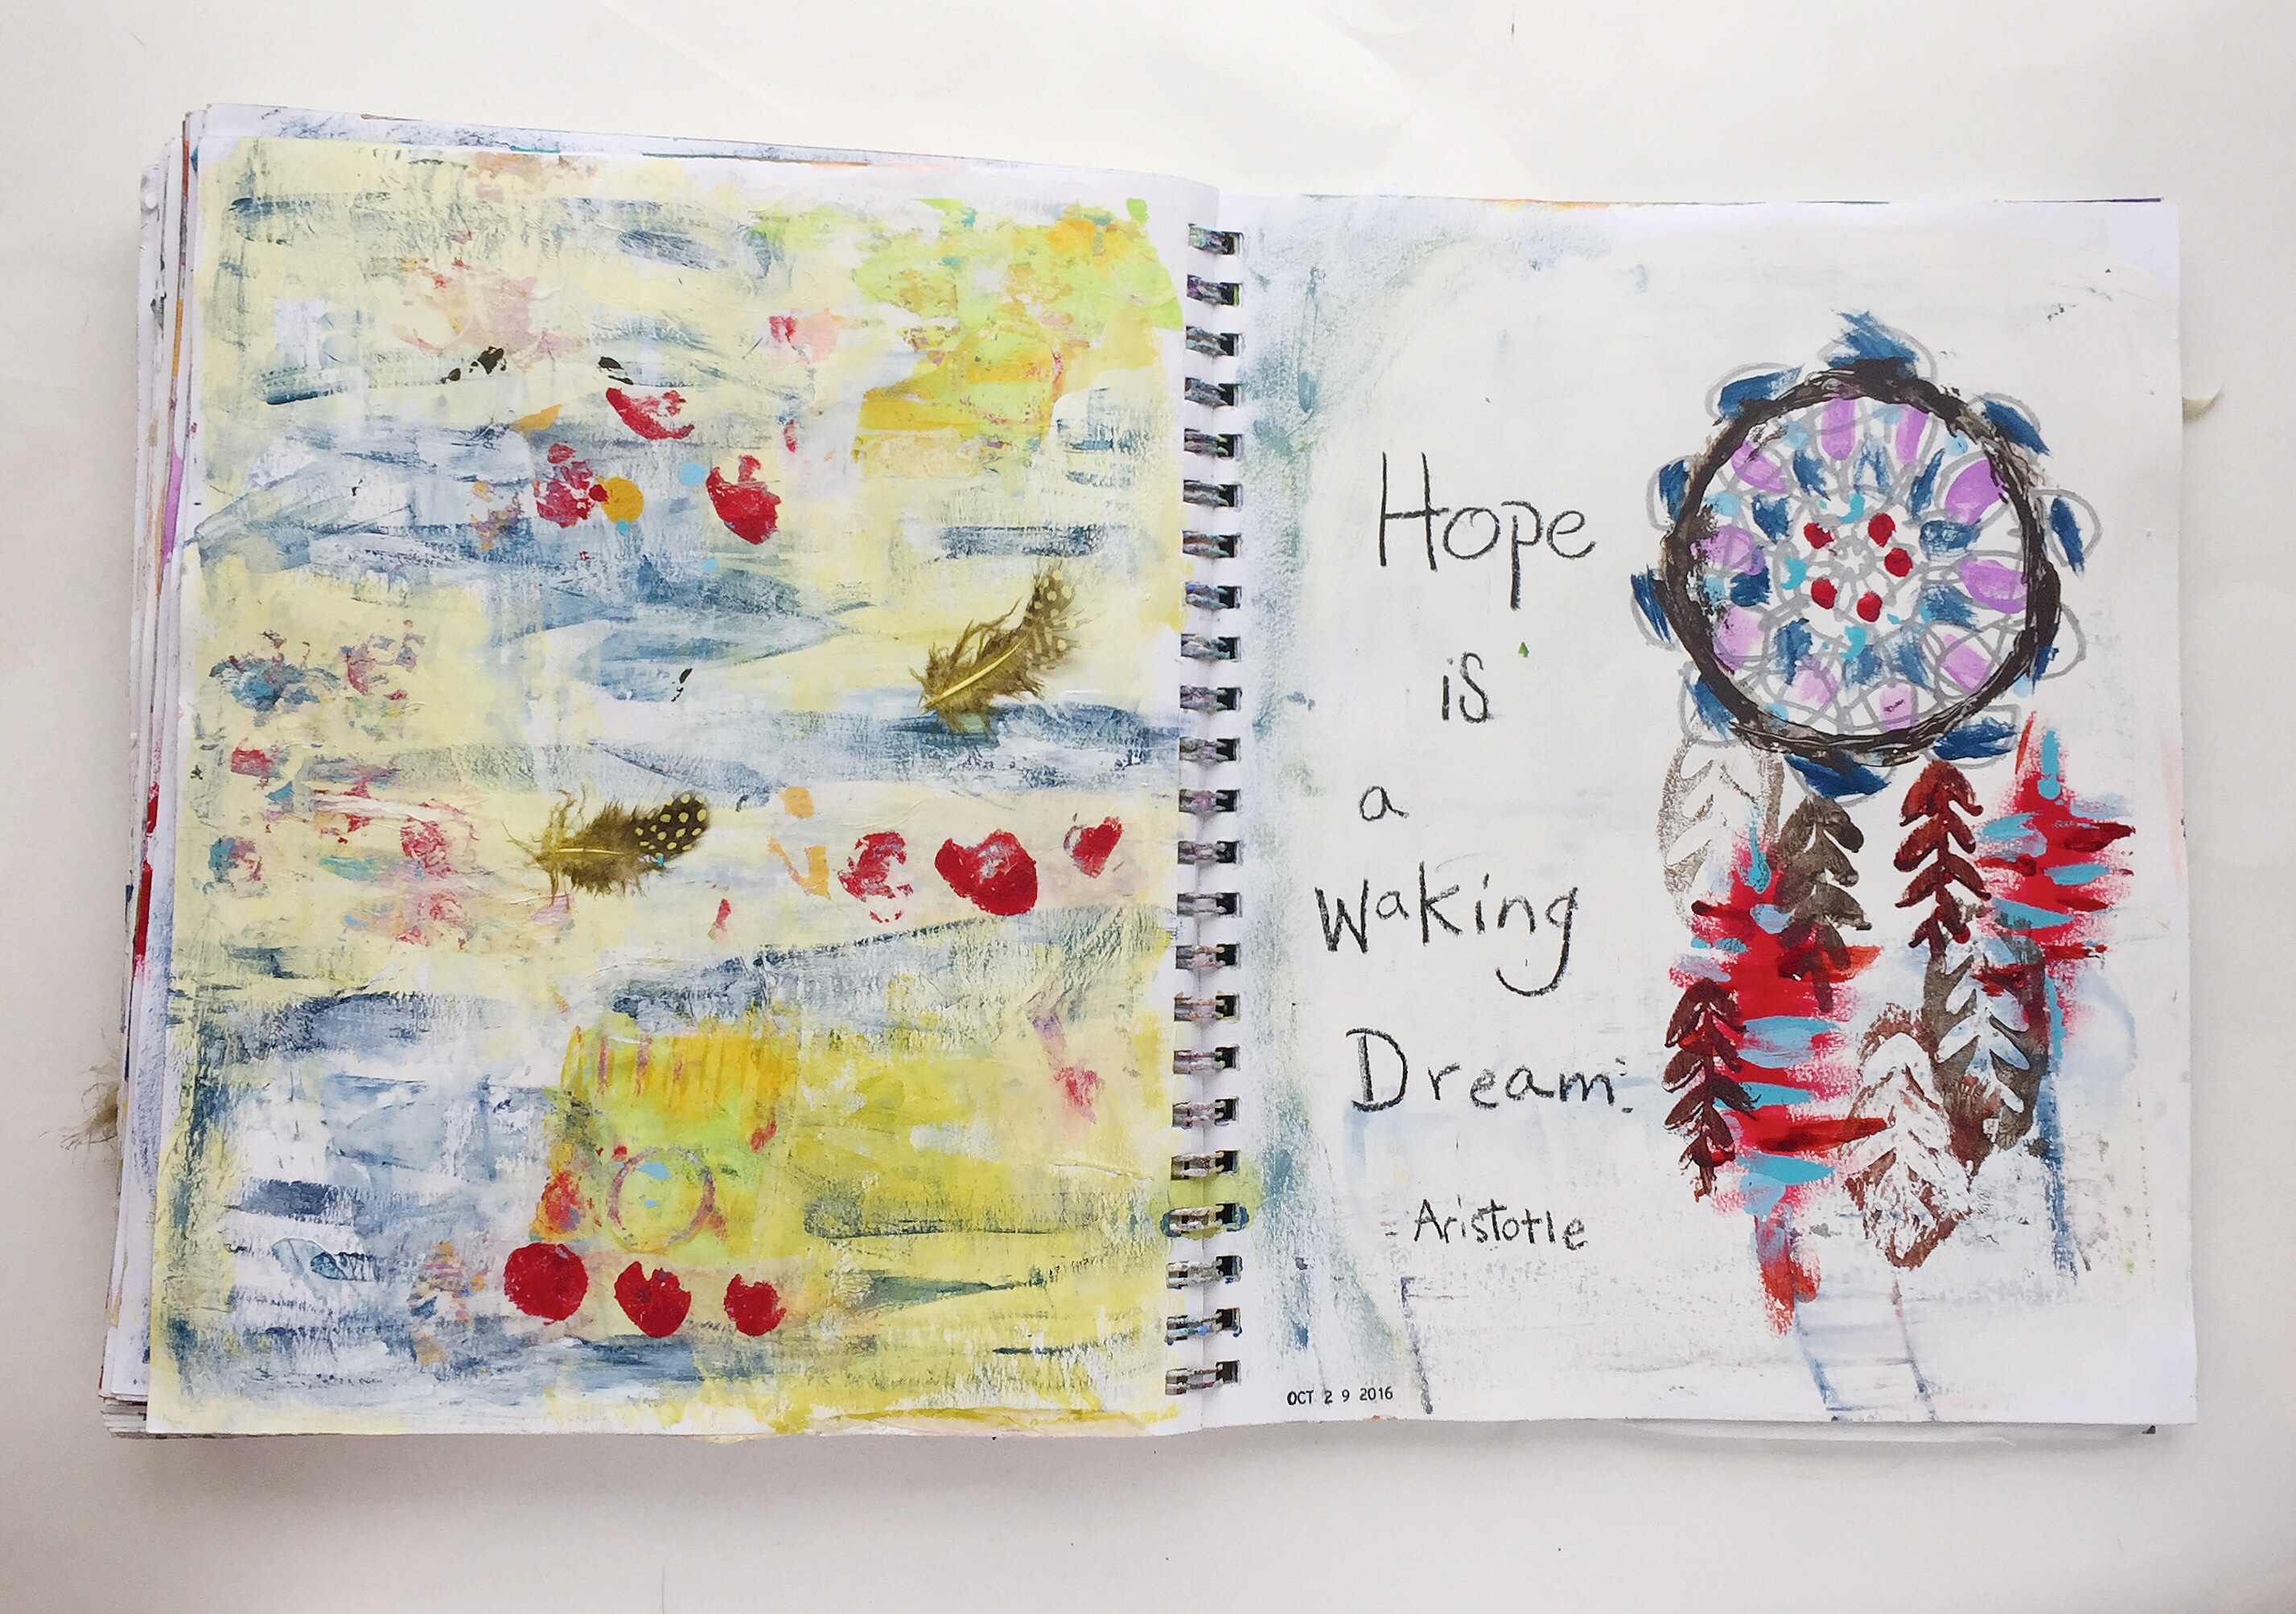 Hope
is
a
Waking
Dream.
- Aristotle
OCT 29 2016